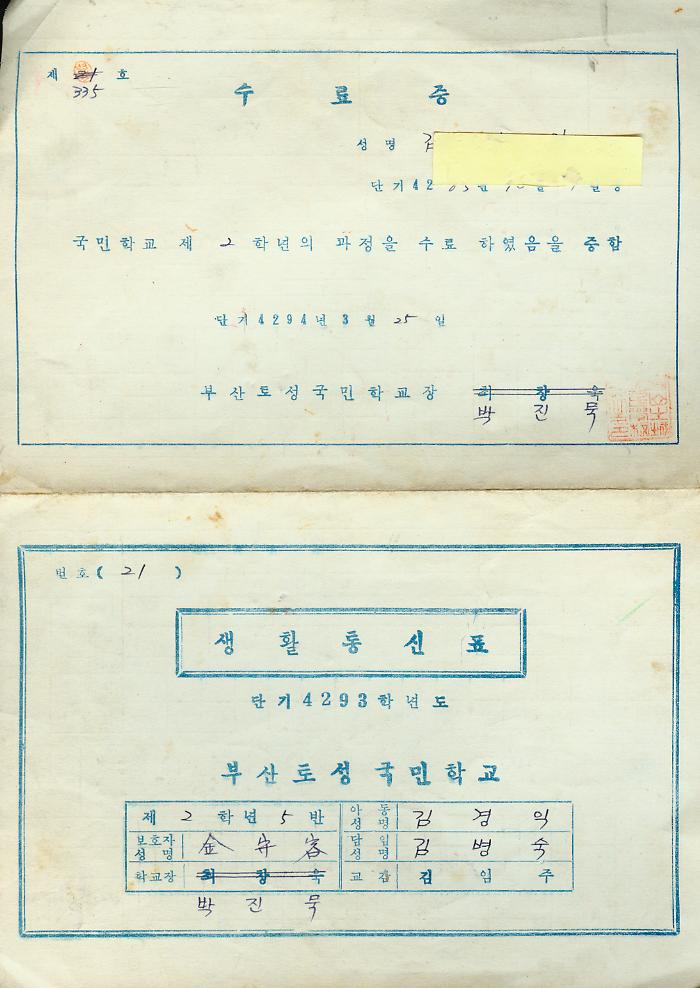 제 21 호
335
수 료 증
성 명 김
단 기 42
국민학교 제 2 학년의 과정을 수료 하였음을 증합
단 기 4 2 9 4 년 3 월 25 일
부산토성국민학교장 최 창 욱
박 진 묵
번 호 ( 21 )
생 활 통 신 표
단 기 4 2 9 3 학 년 도
부산토성국민학교
제 2 학 년 5 반 아 동 성 명 김 경 익
보호자 성 명 金 守 담 임 성 명 김 병 숙
학교장 최 창 욱 교 감 김 임 주
박 진 묵